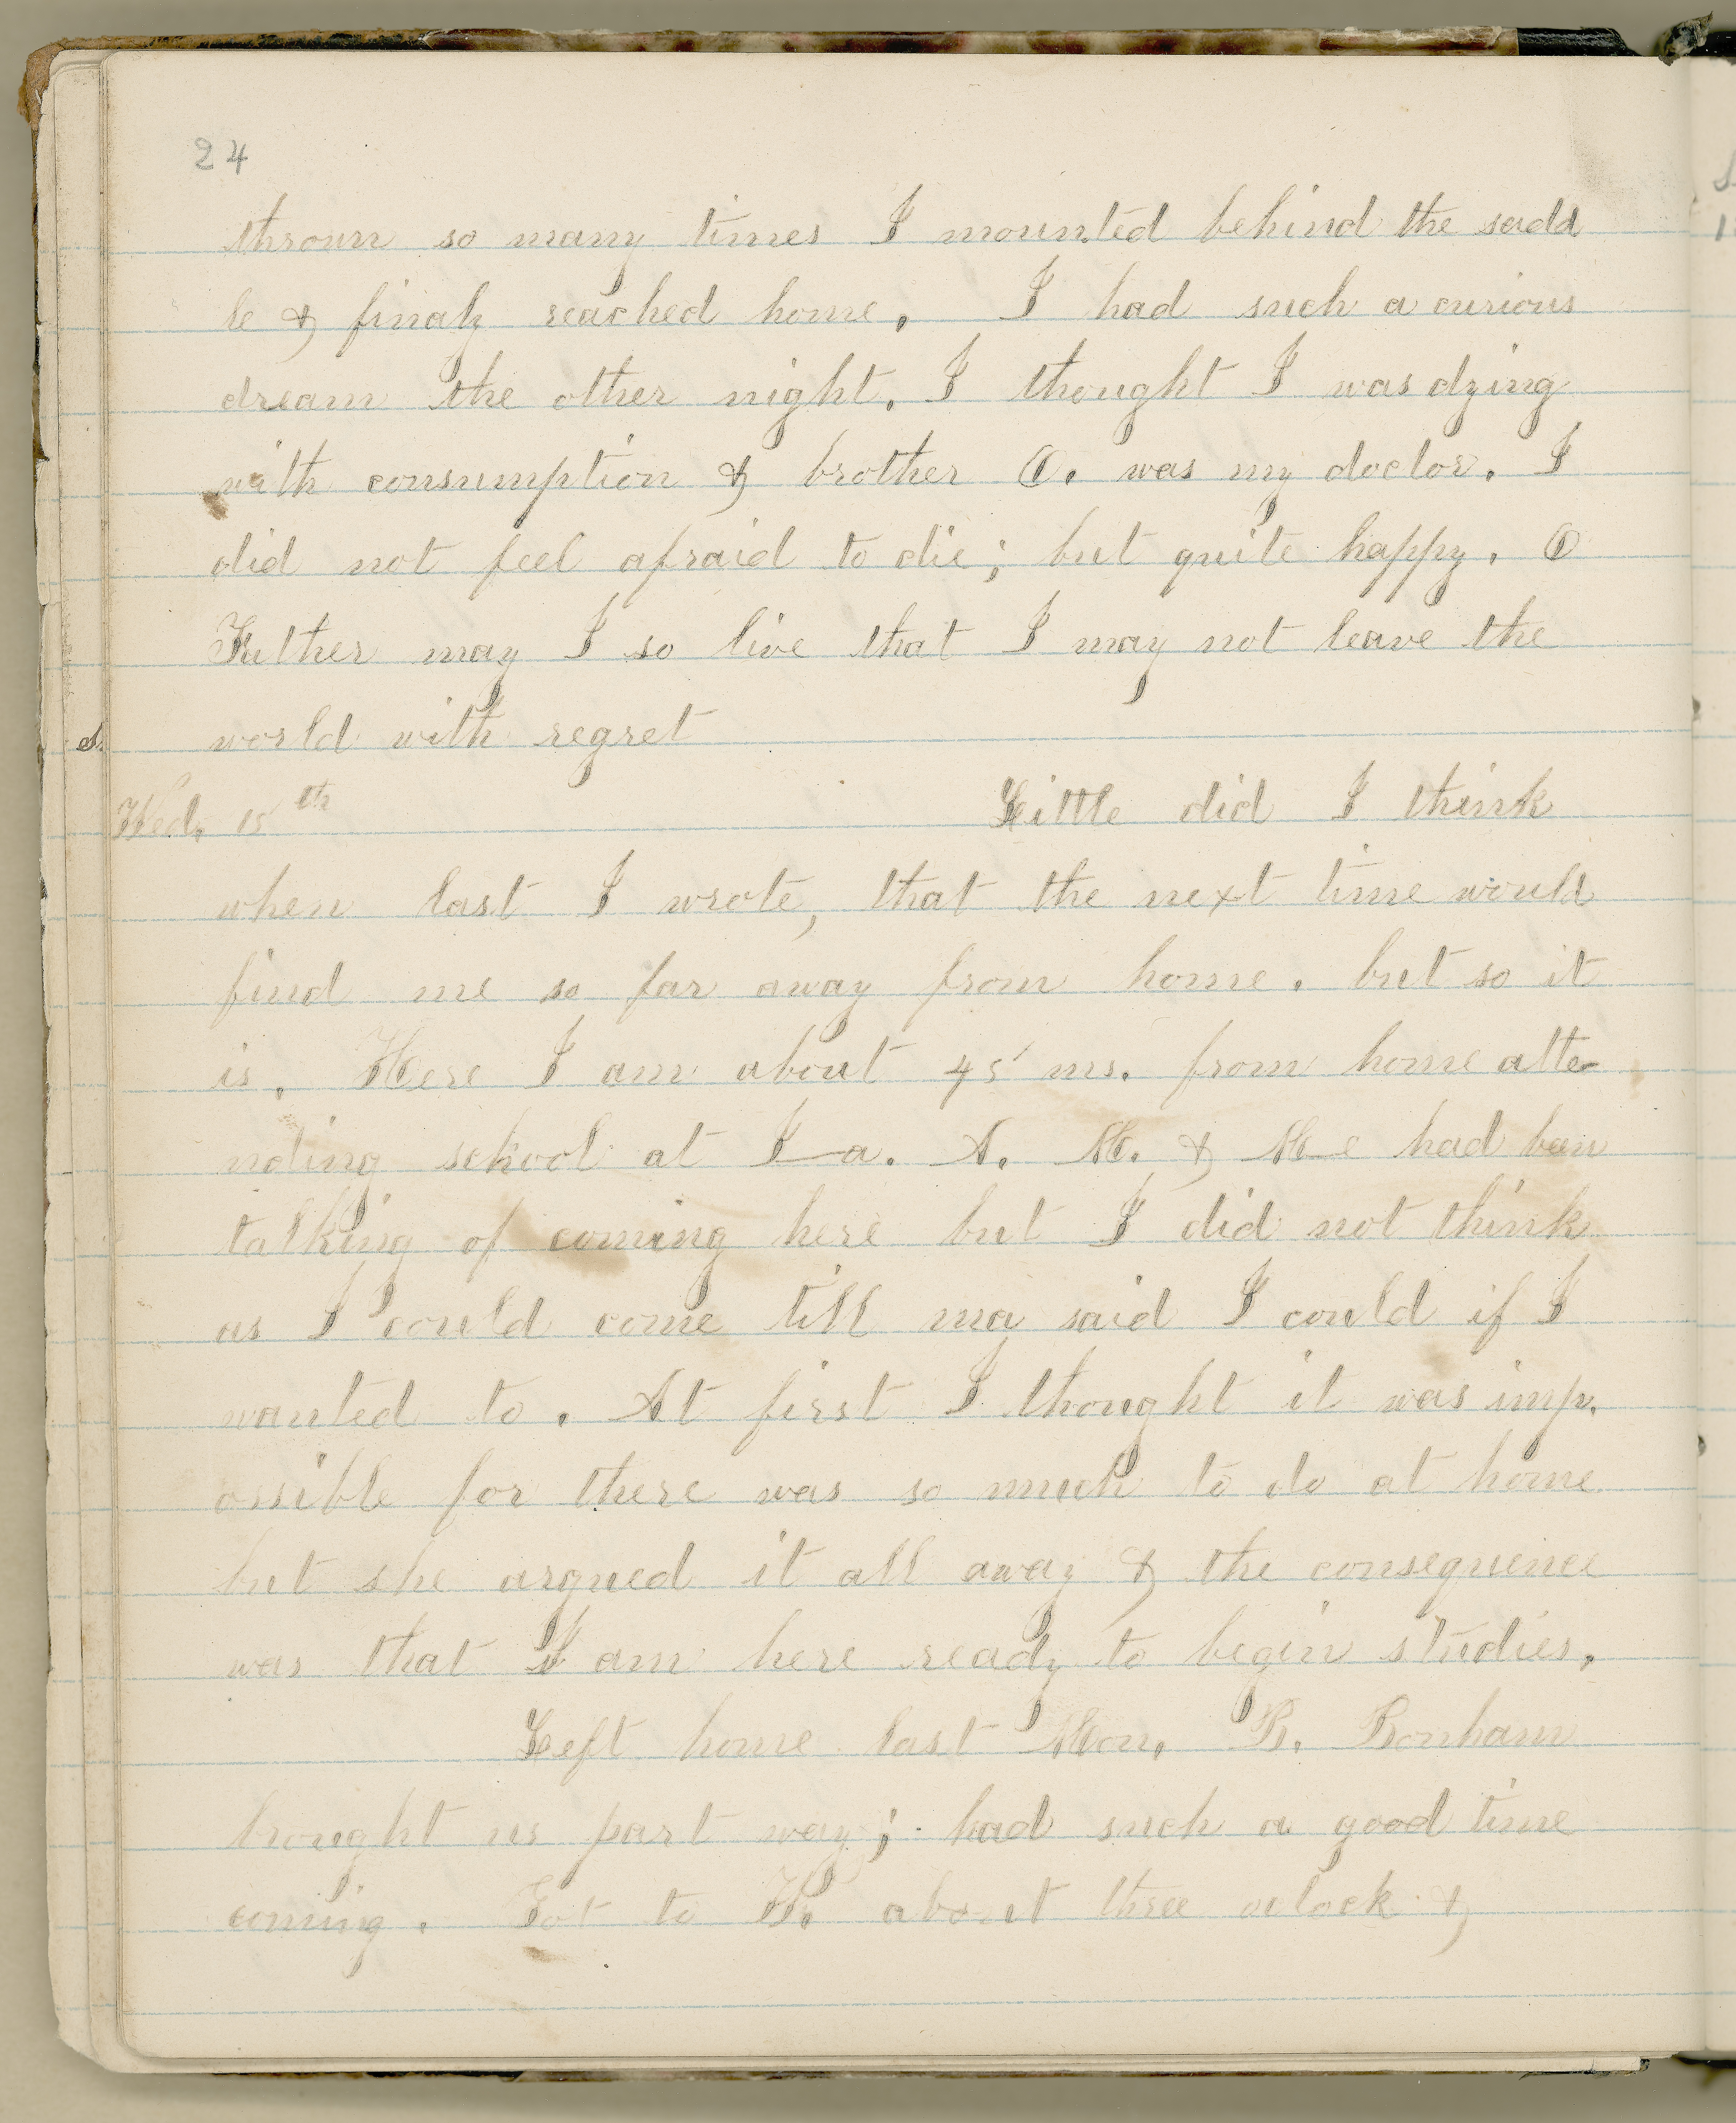 24
thrown so many times I mounted behind the sadd
le & finaly reached home. I had such a curious
dream the other night. I thought I was dying
with consumption & brother O. was my doctor. I
did not feel afraid to die; but quite happy. O
Father may I so live that I may not leave the
world with regret
Wed. 15th Little did I think
when last I wrote, that the next time would
find me so far away from home. but so it
is. Here I am about 45 ms. from home atte-
nding school at I—a. A. M. & M—e had been
talking of coming here but I did not think
as I could come till ma said I could if I
wanted to. At first I thought it was imp.
ossible for there was so much to do at home
but she argued it all away & the consequence
was that I am here ready to begin studies.
Left home last Mon. B. Bonham
brought us part way; had such a good time
coming. Got to K. about three oclock &